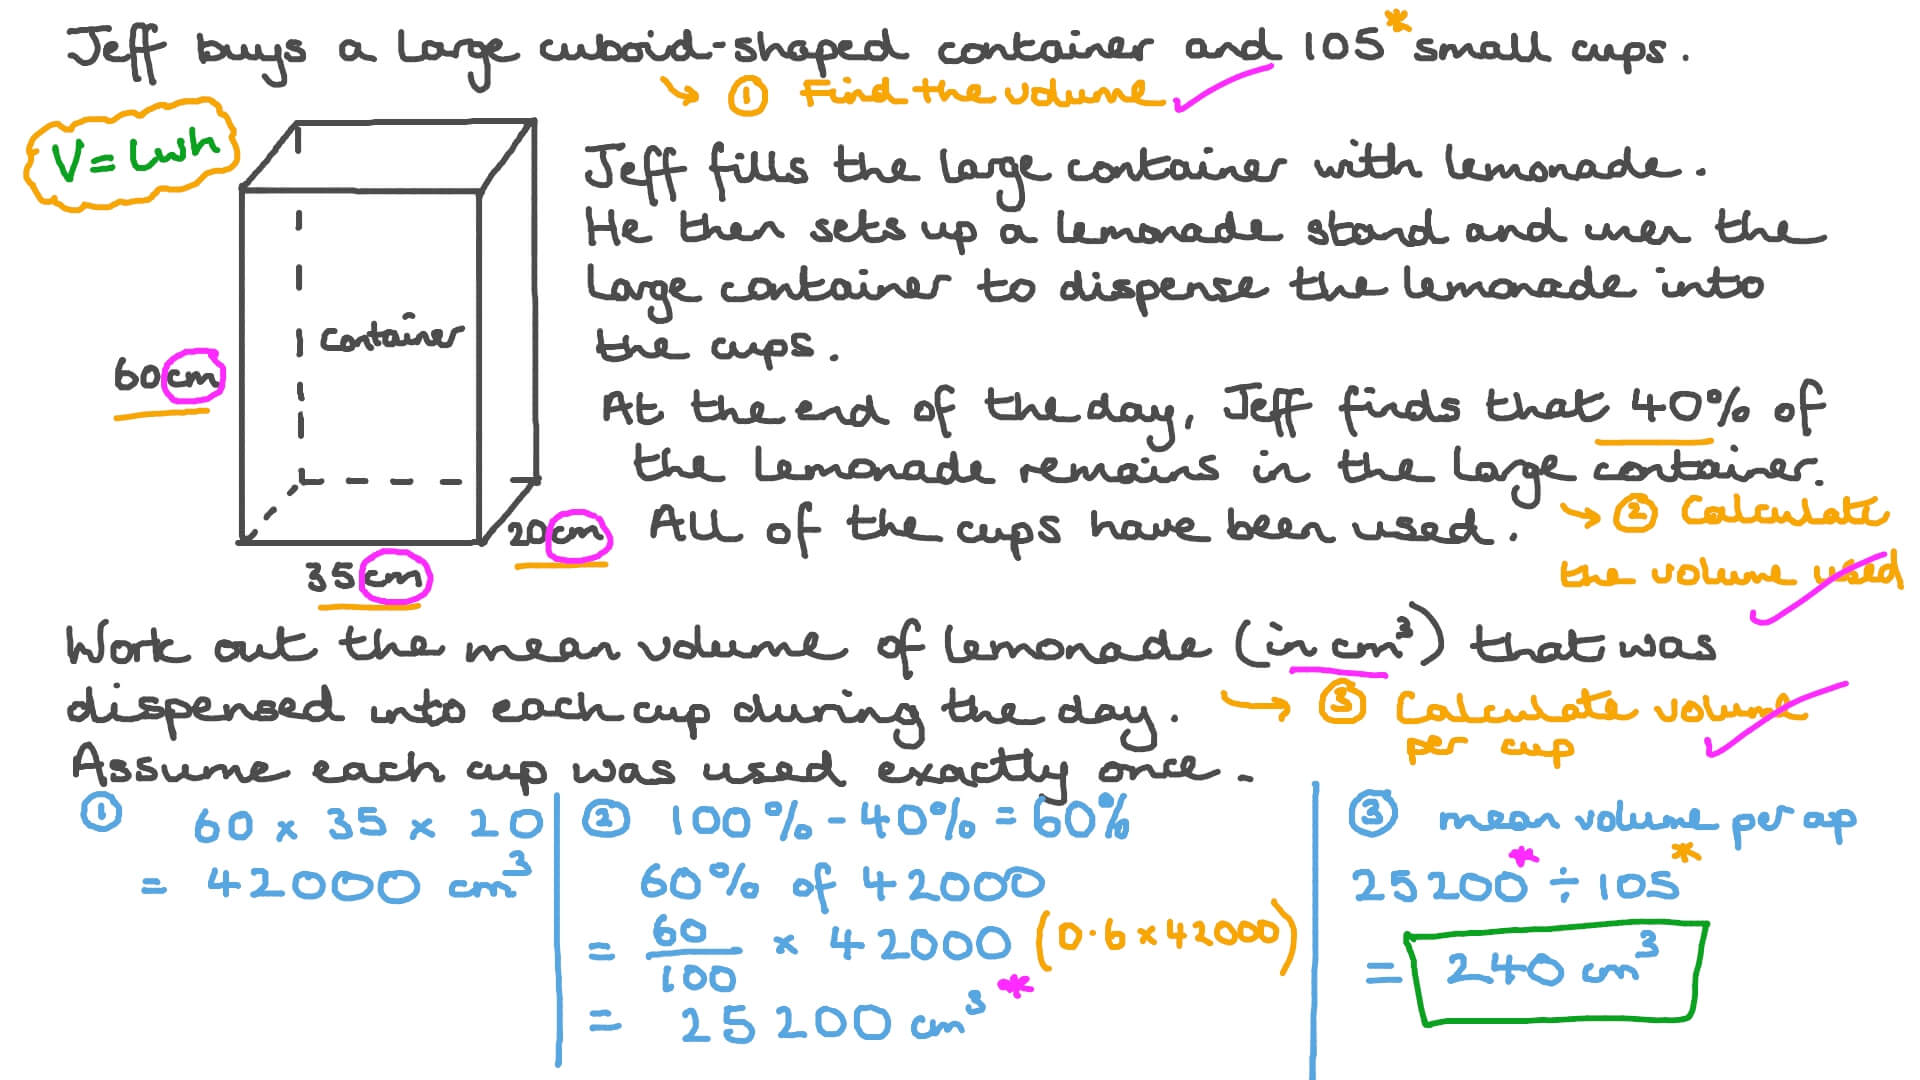 Jeff buys a large cuboid-shaped container and 105* small cups.
→ ① Find the volume ✓
V = Lwh
Jeff fills the large container with lemonade.
He then sets up a lemonade stand and uses the
large container to dispense the lemonade into
the cups.
container
60cm
At the end of the day, Jeff finds that 40% of
the lemonade remains in the large container.
→ ② Calculate
20cm
All of the cups have been used.
the volume used ✓
35cm
Work out the mean volume of lemonade (in cm³) that was
dispensed into each cup during the day.
→ ③ Calculate volume
per cup ✓
Assume each cup was used exactly once.
①
60 x 35 x 20
= 42000 cm³
② 100% - 40% = 60%
60% of 42000
= 60/100 x 42000 (0.6 x 42000)
= 25200 cm³ *
③ mean volume per cup
25200* ÷ 105*
= 240 cm³